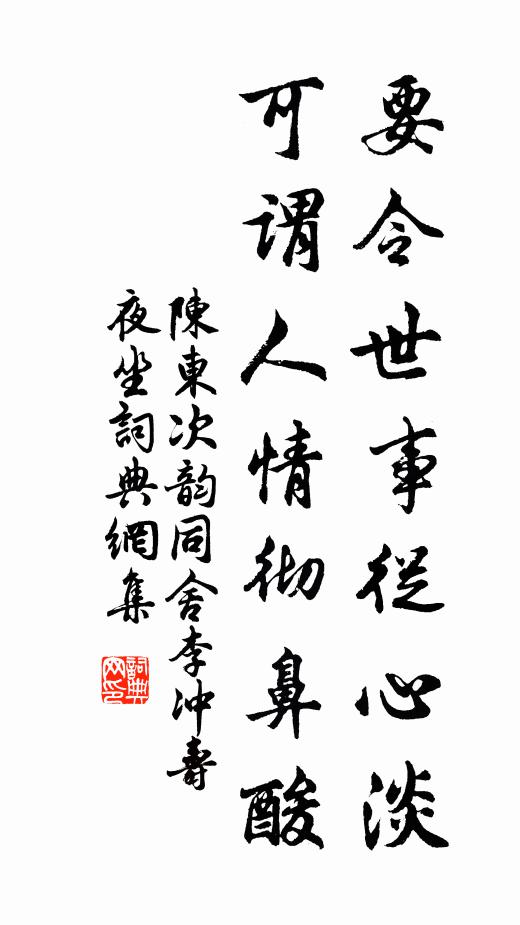 要令世事從心淡
可谓人情彻鼻酸
陳東次韵同舍李冲壽
夜坐詞典網集
詞典
网印